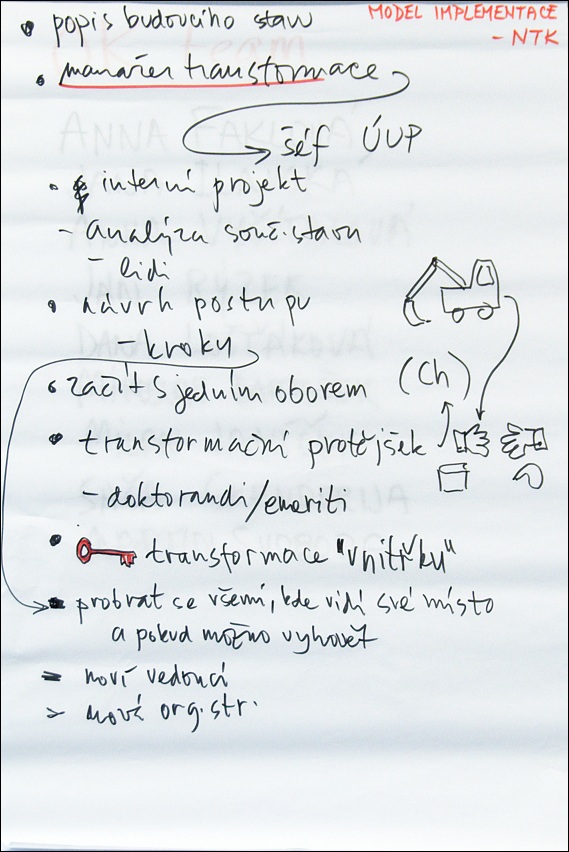 MODEL IMPLEMENTACE
- NTK
• popis budoucího stavu
• manažer transformace
šéf ÚVP
• interní projekt
- analýza souč. stavu
- lidi
• návrh postupu
- kroky
• začít s jedním oborem
(Ch)
• transformační protějšek
- doktorandi/emeriti
• transformace "vnitřku"
- probrat se všemi, kde vidí své místo
a pokud možno vyhovět
= noví vedoucí
> nová org. str.